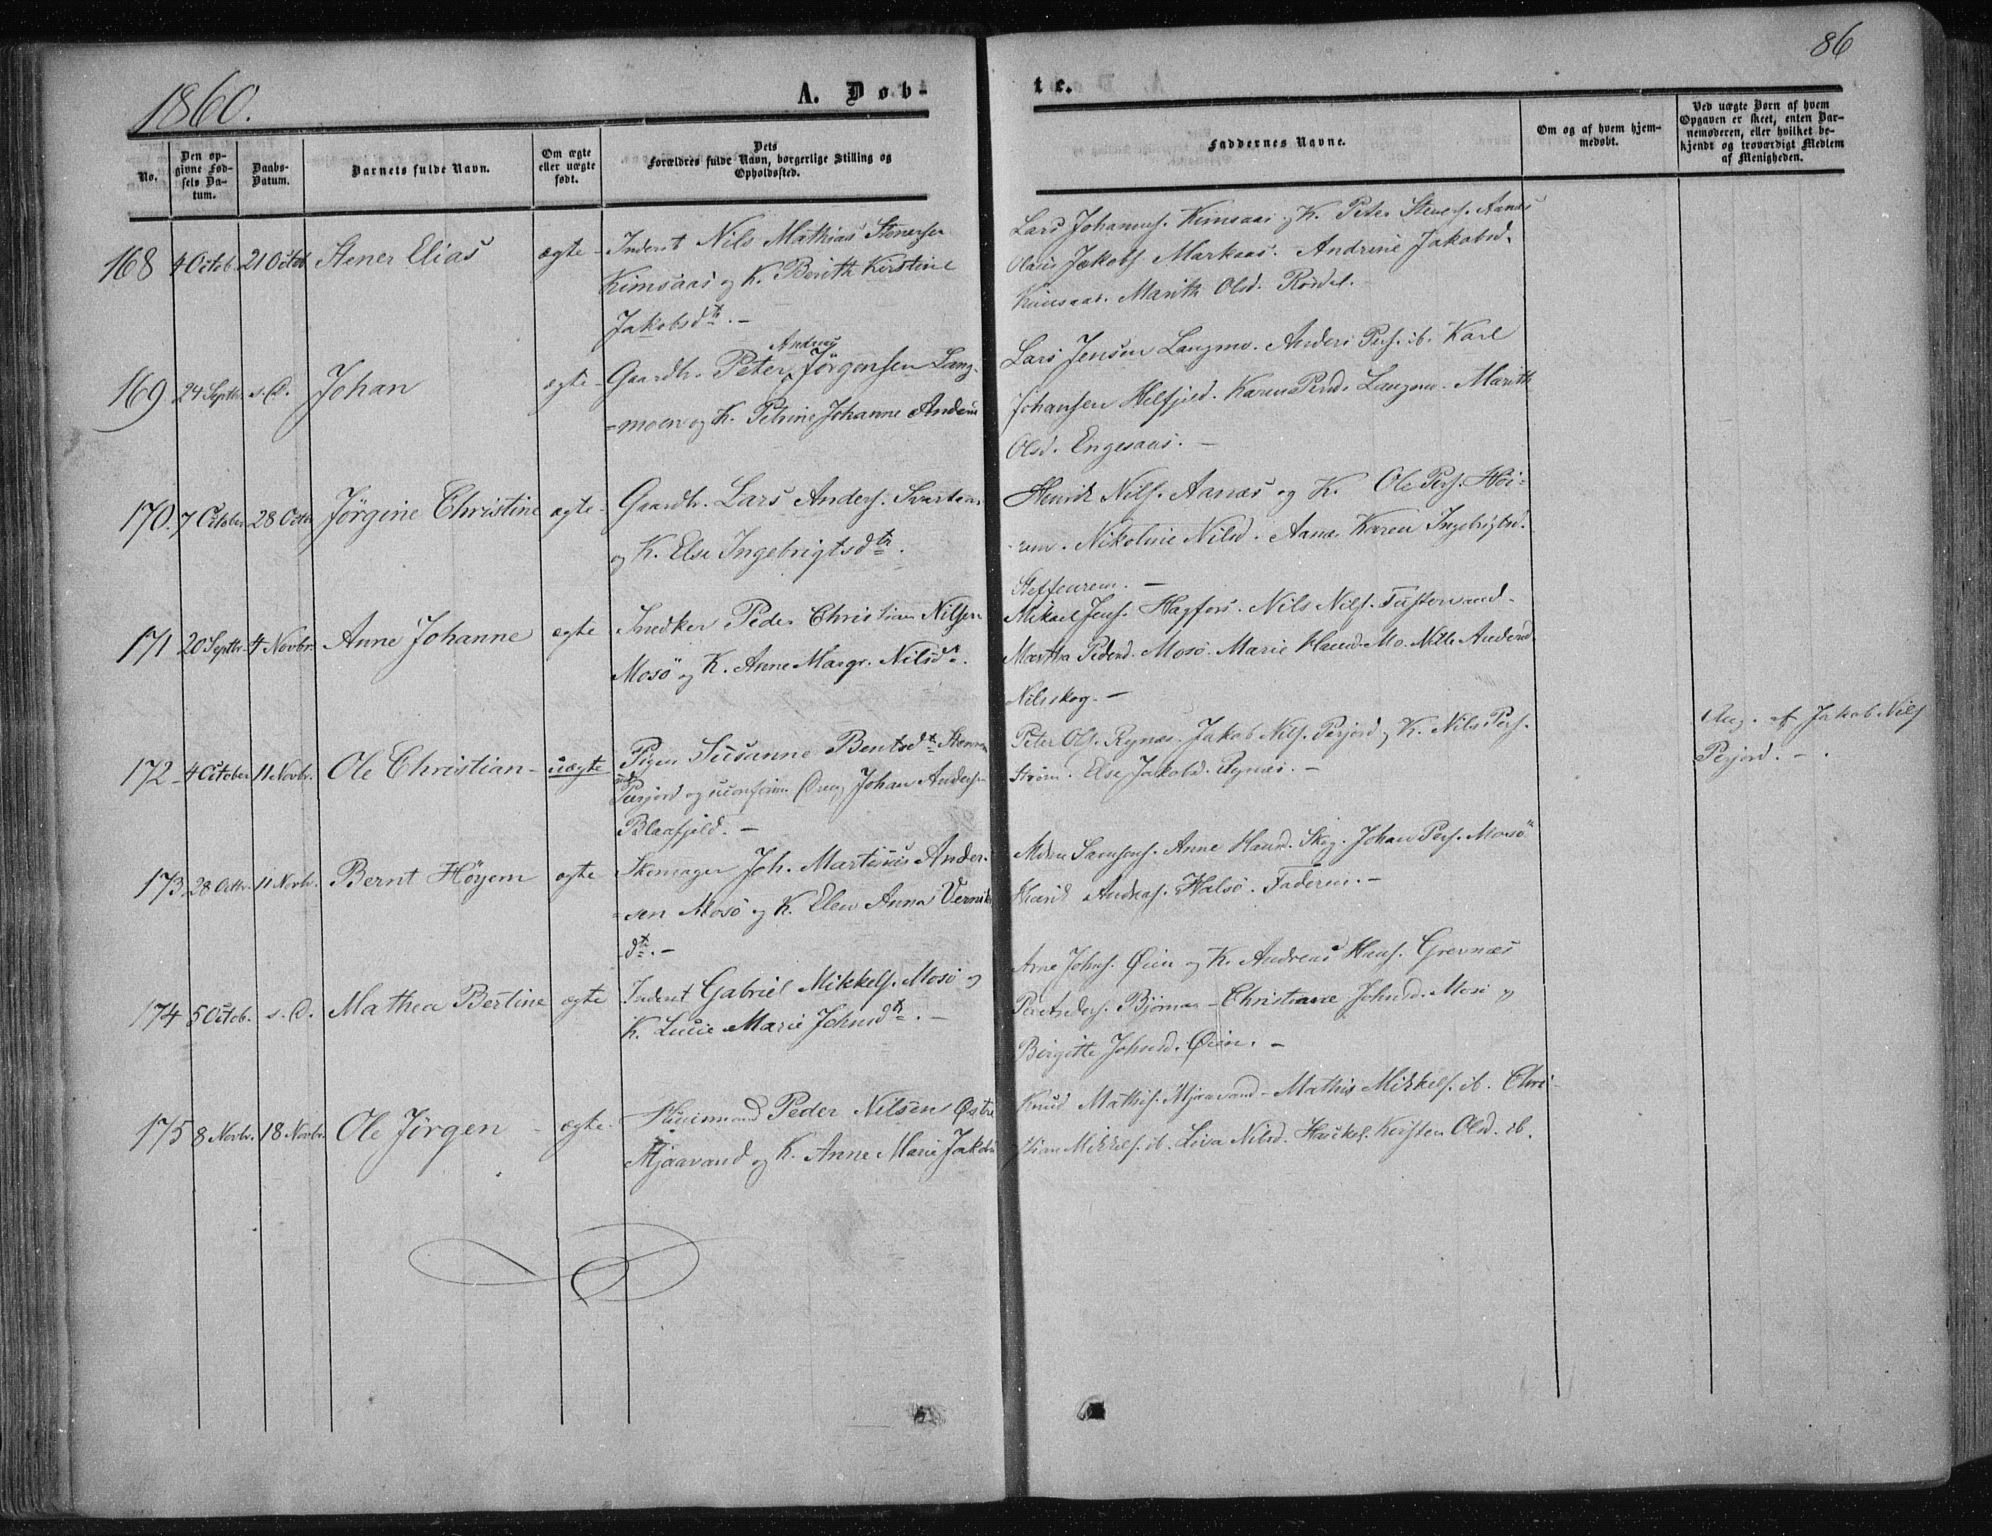 86
1860.
A. Døb-
te.
No.
Den op-
givne Fød-
sels Da-
tum.
Daabs-
Datum.
Barnets fulde Navn.
Om ægte
eller uægte
født.
Dets
Forældres fulde Navn, borgerlige Stilling og
Opholdssted.
Faddernes Navne.
Om og af hvem hjem-
medøbt.
Ved uægte Børn af hvem
Opgaven er skeet, enten Bar-
nemoderen, eller hvilket be-
kjendt og troværdigt Medlem
af Menigheden.
168 4 Octob. 21 Octob Stener Elias ægte - Inderst Nils Mathias Stenersen
Kimsaas og K. Berith Kirstine
Jakobsdtr. -
Lars Johannes. Kimsaas og K. Peter Steners. Aanæs
Jakobs. Markaas. Andrine Jakobsd.
Kimsaas. Marith Olsd. Rördel.
169 24 Septbr. s. D. Johan ægte - Gaardb. Peter Andreas Jörgensen Lang-
=moen og K. Petrine Johanne Anders
Lars Jensen Langmo. Anders Pers. ib. Karl
Johansen Helfjeld. Karen Persd. Langmo. Marith
Olsd. Engesaas. -
170. 7 October 28 Octbr Jörgine Christine ægte - Gaardb. Lars Anders.
og K. Else Ingebrigtsdtr.
Henrik Nils. Aanæs og K. Ole Pers. Höi-
rem. Nikoline Nilsd. Aanæs Karen Ingebrigtsd.
Steffenrem. -
171 20 Septbr. 4 Novbr. Anne Johanne ægte Snedker Peder Christian Nilsen
Mosö og K. Anne Margr. Nilsdtr.
Mikael Jens. Hagfors. Nils Nils. Fustervand.
Martha Pedersd. Mosö. Marie Hansd. Mo. Andersd.
Nilsskog. -
172 4 October 11 Novbr. Ole Christian - uægte Pigen Susanne Bentsdtr.
Persjord og Johan Anders
Blaafjeld. -
Peter Ols. Rynæs. Jakob Nils. Persjord og K. Nils Pers.
Strøm. Else Jakobsd. Rynæs. -
Ang. af Jakob Nils
Persjord. - .
173 28 Octbr. 11 Novbr. Bernt Höyem ægte Skomager Joh. Martinus Ander-
=sen Mosö og K. Elen Anna
dtr. -
Samsons. Anne Hansd. Skog. Johan Pers. Mosö
Andreas. Halsö. Faderen. -
174 5 Octob. s. D. Mathea Bertine ægte Inderst Gabriel Mikkels. Mosö og
K. Lucie Marie Johnsdtr. -
Arne Johns. Øien og K. Andreas Hans. Grevnæs
Bjørnæs - Christiane Johnsd. Mosö og
Birgitte Johnsd. Øien. -
175 8 Novbr. 18 Novbr. Ole Jörgen - ægte - Huusmand Peder Nilsen Østre
Mjaavand og K. Anne Marie Jakobs
Knud Mathis. Mjaavand - Mathis Mikkels. ib. Chri-
stian Mikkels. ib. Lisa Nilsd. Kirsten Olsd. ib.